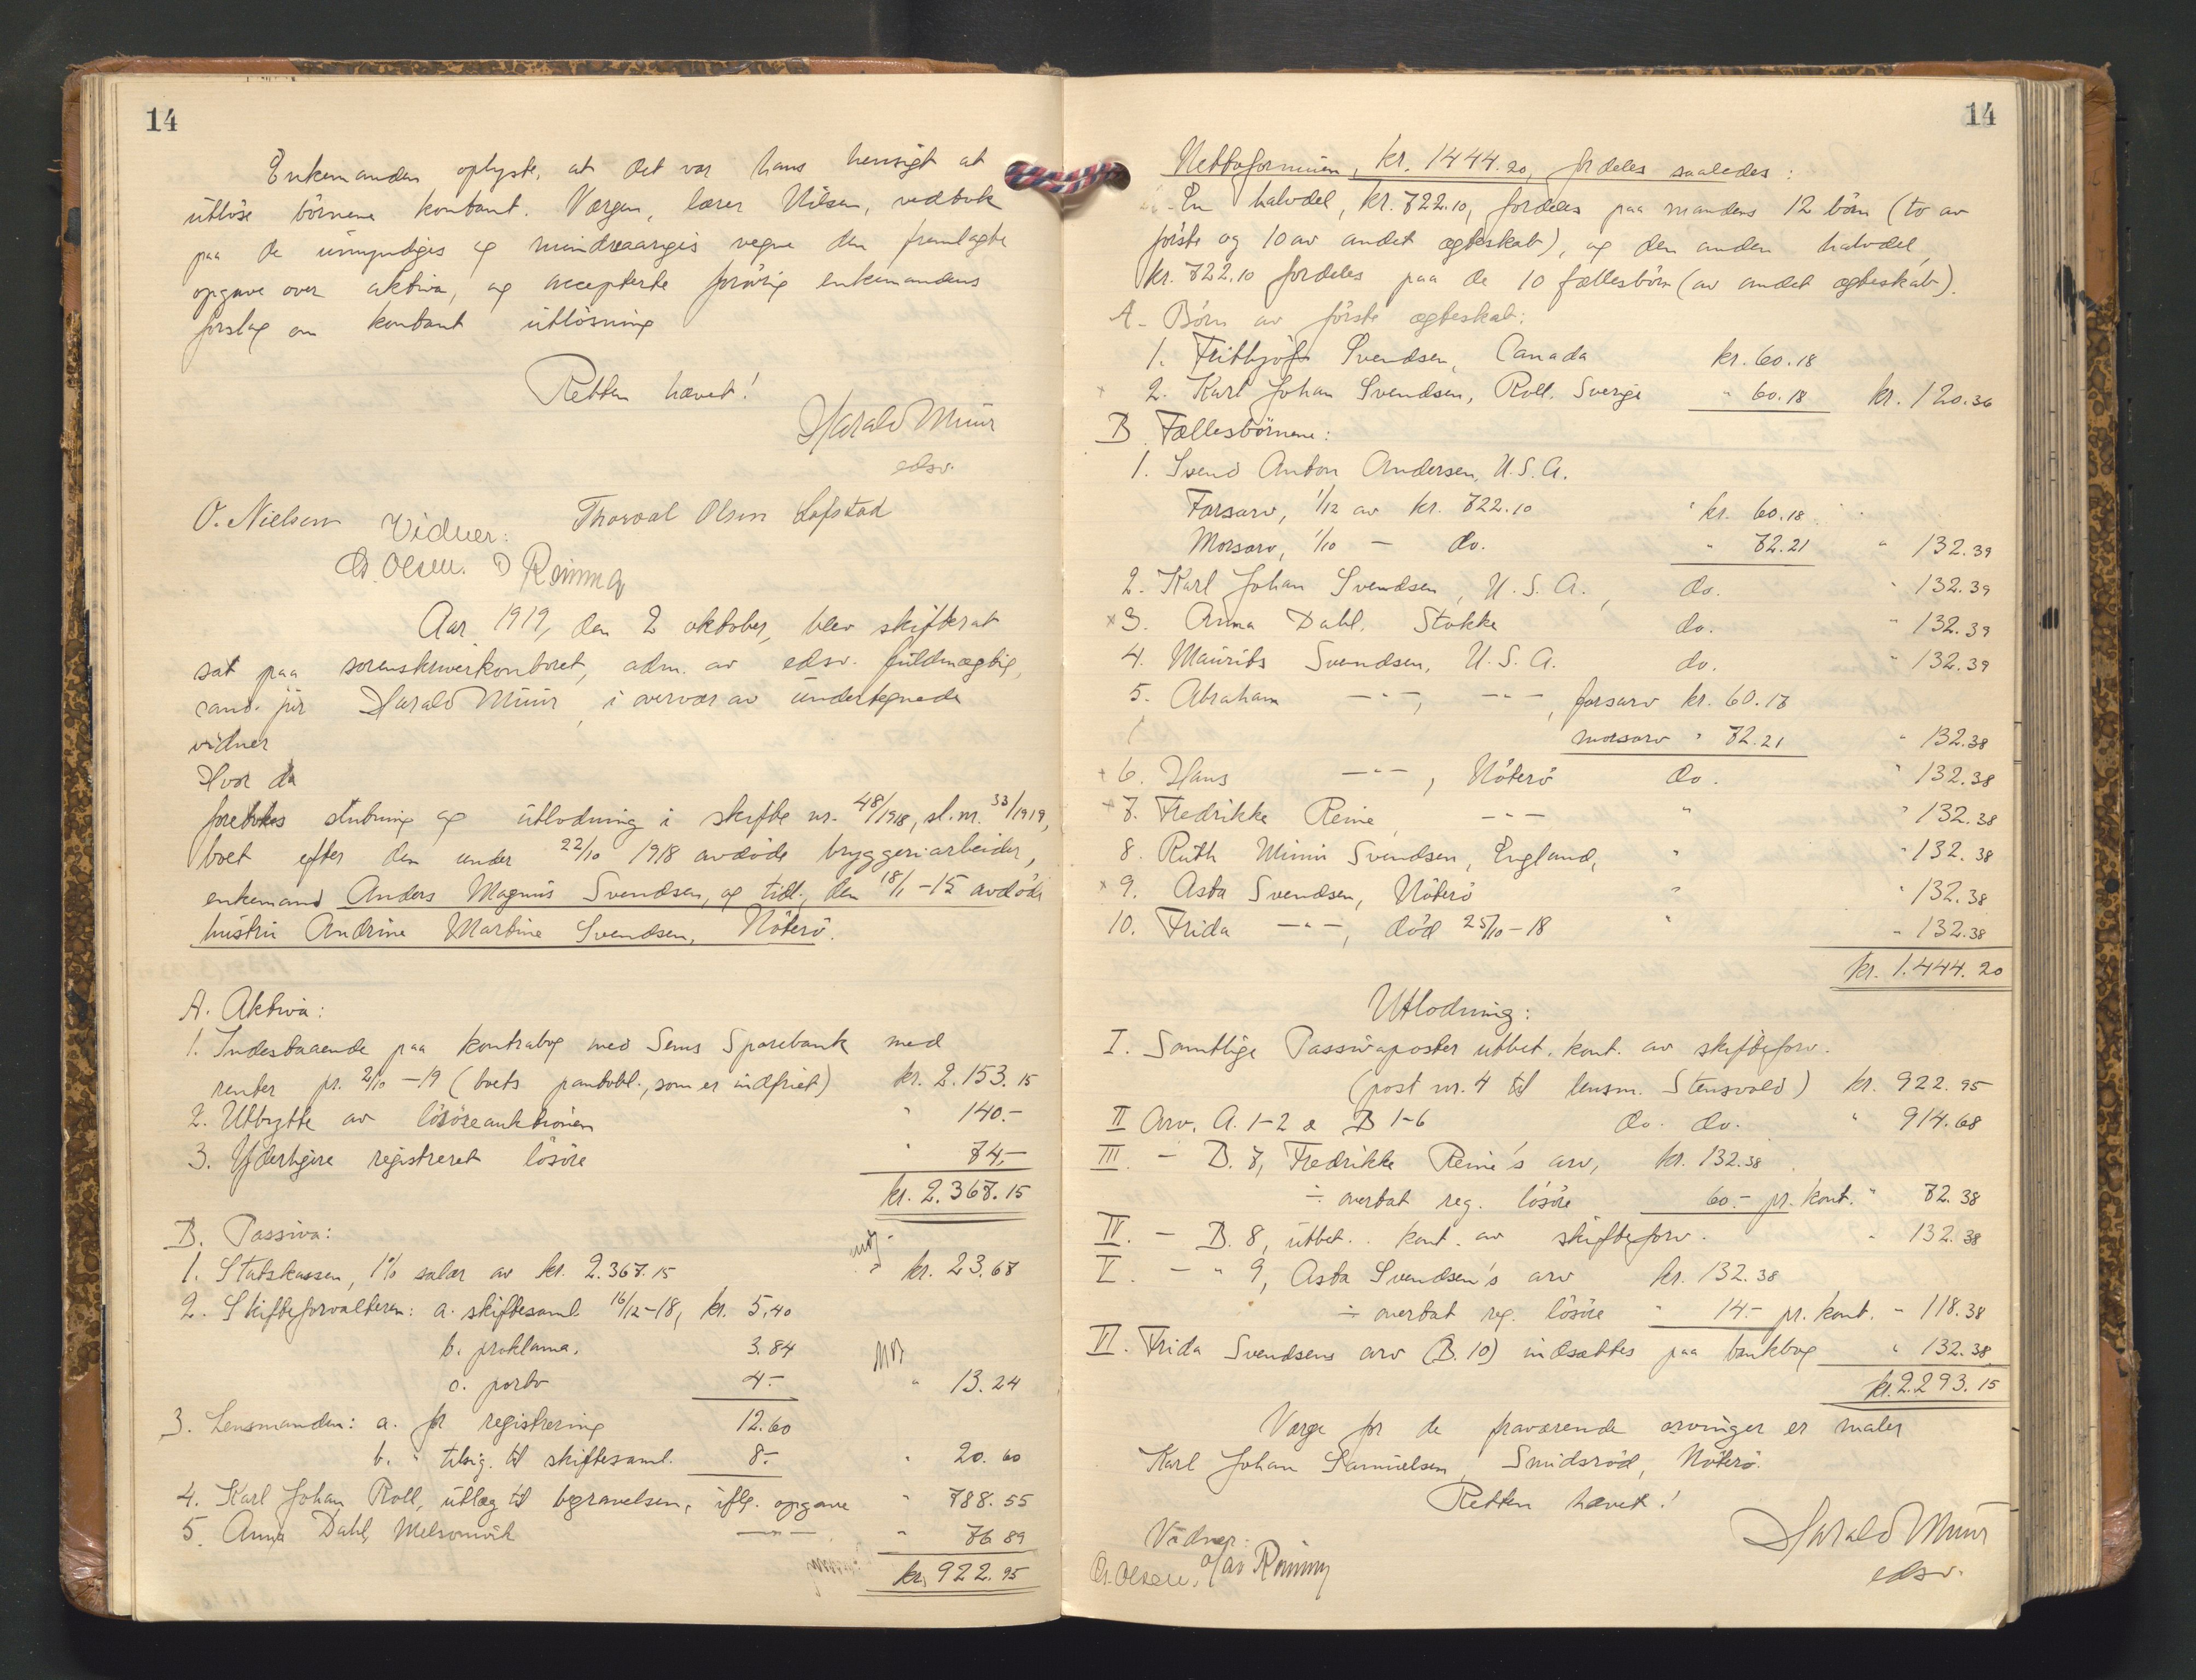 14
Enkemanden oplyste, at det var hans hensigt at
utløse börnene kontant. Værgen, lærer Nilsen, vedtok
paa de umyndiges og mindreaariges vegne den fremlagte
opgave over aktiva, og accepterte forøvrig enkemandens
forslag om kontant utlösning
Retten hævet!
Harald Muur
edsv.
O. Nielsen Thorval Olsen Lofstad
Vidner:
Chr. Olsen. O Rønning
Aar 1919, den 2 oktober, blev skifteret
sat paa sorenskriverkontoret, adm. av edsv. fuldmægtig,
cand. jur Harald Muur, i overvær av undertegnede
vidner
Hvor da
foretokes slutning og utlodning i skifte nr. 48/1918, sl. nr. 33/1919,
boet efter den under 22/10 1918 avdøde bryggeriarbeider,
enkemand Anders Magnus Svendsen, og tidl., den 18/1-15 avdöde
hustru Andrine Martine Svendsen, Nöterö.
A. Aktiva:
1. Indestaaende paa kontrabog med Sems Sparebank med
renter pr. 2/10 -19 (boets pantobl., som er indfriet) kr. 2.153.15
2. Utbytte av lösöreauktionen " 140.-
3. Yderligere registreret lösöre " 74.-
kr. 2.367.15
B. Passiva:
1. Statskassen, 1% salær av kr. 2.367.15 kr. 23.67
2. Skifteforvalteren: a. skiftesaml. 16/12-18, kr. 5.40
b. proklama. 3.84
c. porto 4.- " 13.24
3. Lensmanden: a. for registrering 12.60
b. " tilsig. til skiftesaml. 8.- " 20.60
4. Karl Johan Roll, utlæg til begravelsen, iflg. opgave " 788.55
5. Anna Dahl, Melsomvik -"- " 76.89
kr. 922.95
14
Nettoformuen, kr. 1444.20, fordeles saaledes:
En halvdel, kr. 722.10, fordeles paa mandens 12 börn (to av
förste og 10 av andet ægteskab), og den anden halvdel,
kr. 722.10 fordeles paa de 10 fællesbörn (av andet ægteskab).
A. Börn av förste ægteskab:
1. Frithjof Svendsen, Canada kr. 60.18
x 2. Karl Johan Svendsen, Roll. Sverige " 60.18 kr. 120.36
B. Fællesbörnene:
1. Svend Anton Andersen, U.S.A.
Farsarv, 1/12 av kr. 722.10 kr. 60.18
Morsarv, 1/10 - do. " 72.21 " 132.39
2. Karl Johan Svendsen, U.S.A., do. " 132.39
x 3. Anna Dahl, Stokke do. " 132.39
4. Maurits Svendsen, U.S.A. do. " 132.39
5. Abraham -"-, -"-, farsarv kr. 60.17
morsarv " 72.21 " 132.38
x 6. Hans -"-, Nöterö do. " 132.38
x 7. Fredrikke Reine, -"- " " 132.38
8. Ruth Mimi Svendsen, England, " " 132.38
x 9. Asta Svendsen, Nöterö " " 132.38
10. Frida -"-, död 25/10-18 " " 132.38
kr. 1.444.20
Utlodning:
I. Samtlige Passivaposter utbet. kont. av skifteforv.
(post nr. 4 til lensm. Stensvold) kr. 922.95
II Arv. A. 1-2 & B 1-6 do. do. " 914.68
III. - B. 7, Fredrikke Reine's arv, kr. 132.38
÷ overtat reg. lösöre 60.- pr. kont. " 72.38
IV. - B. 8, utbet. kont. av skifteforv. " 132.38
V. - " 9, Asta Svendsen's arv kr. 132.38
÷ overtat reg. lösöre " 14.- pr. kont. " 118.38
VI. Frida Svendsens arv (B. 10) indsættes paa bankbog " 132.38
kr. 2.293.15
Værge for de fraværende arvinger er maler
Karl Johan Samuelsen, Smidsröd, Nöterö.
Retten hævet!
Vidner: Harald Muur
Chr. Olsen. Olav Rønning edsv.